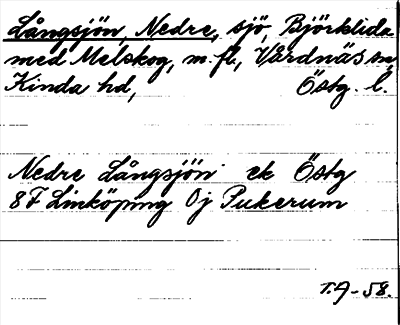 Långsjön, Nedre, sjö, Björklida
med Melskog, m.fl., Vårdnäs sn,
Kinda hd, Östg. l.
Nedre Långsjön ek Östg
8F Linköping 0j Pukerum
T.A-58.